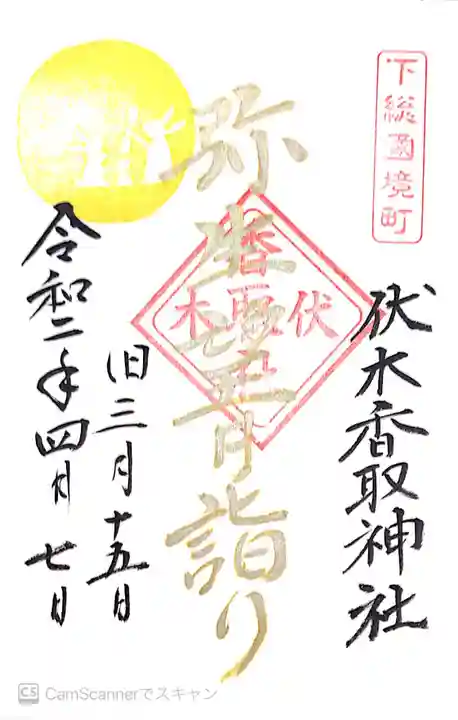 下総國境町
伏木香取神社
弥生望月詣り
伏木
香取
旧三月十五日
令和二年四月七日
CS CamScannerでスキャン